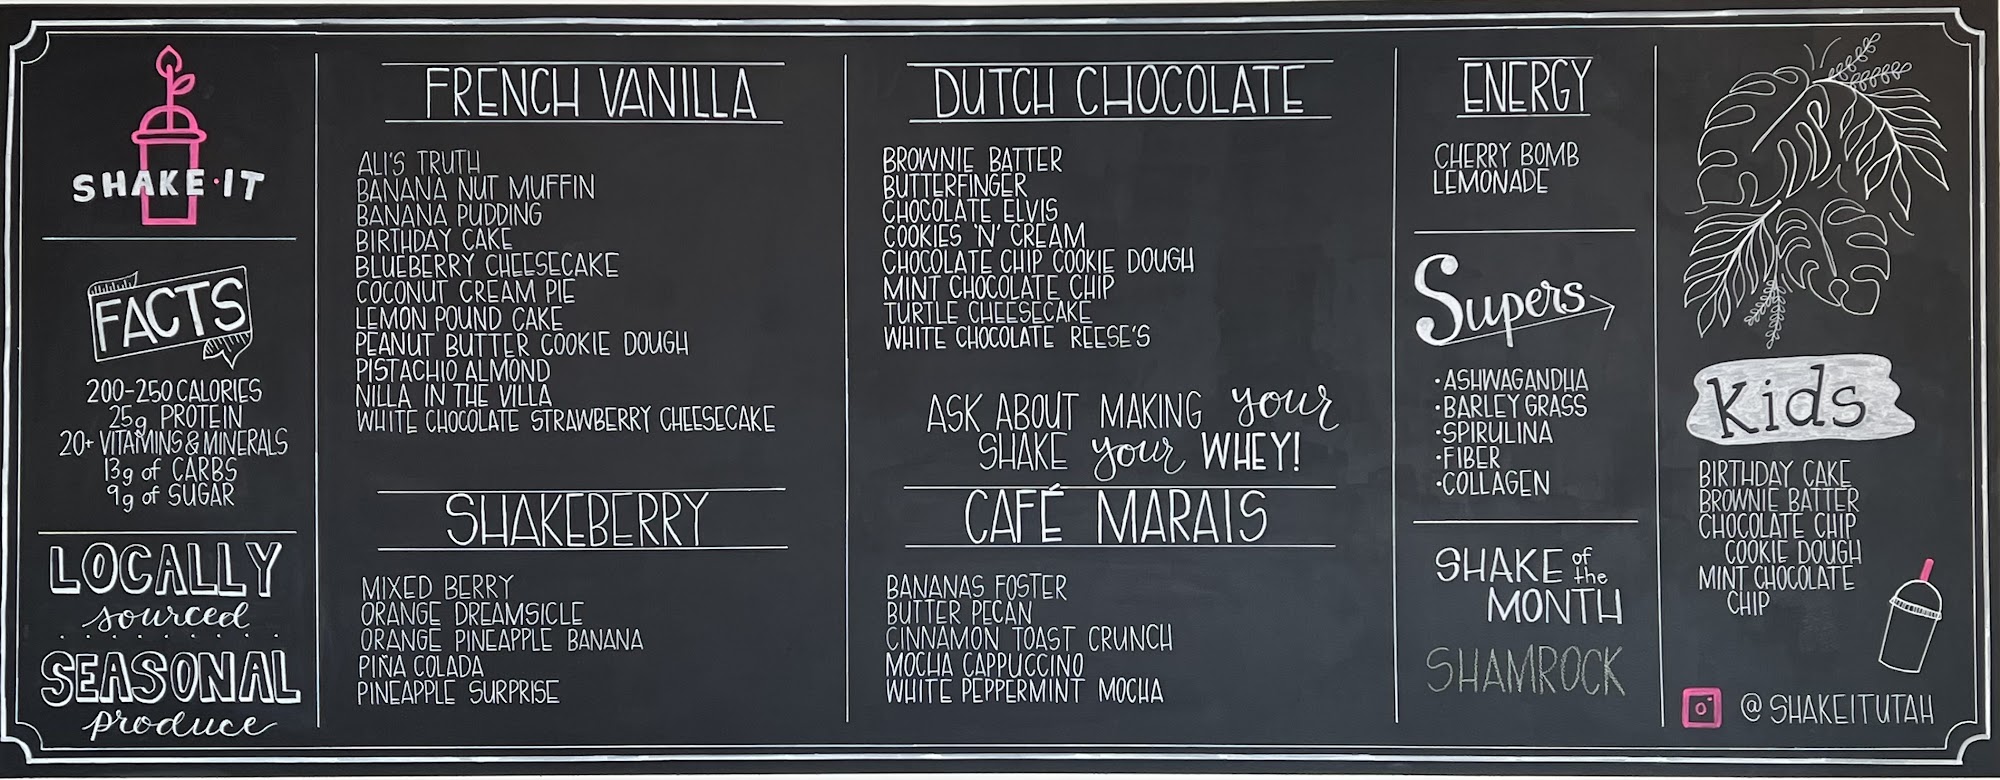 SHAKE·IT
FACTS
200-250 CALORIES
25g PROTEIN
20+ VITAMINS & MINERALS
13g of CARBS
9g of SUGAR
LOCALLY
sourced
SEASONAL
produce
FRENCH VANILLA
ALI'S TRUTH
BANANA NUT MUFFIN
BANANA PUDDING
BIRTHDAY CAKE
BLUEBERRY CHEESECAKE
COCONUT CREAM PIE
LEMON POUND CAKE
PEANUT BUTTER COOKIE DOUGH
PISTACHIO ALMOND
NILLA IN THE VILLA
WHITE CHOCOLATE STRAWBERRY CHEESECAKE
SHAKEBERRY
MIXED BERRY
ORANGE DREAMSICLE
ORANGE PINEAPPLE BANANA
PIÑA COLADA
PINEAPPLE SURPRISE
DUTCH CHOCOLATE
BROWNIE BATTER
BUTTERFINGER
CHOCOLATE ELVIS
COOKIES 'N' CREAM
CHOCOLATE CHIP COOKIE DOUGH
MINT CHOCOLATE CHIP
TURTLE CHEESECAKE
WHITE CHOCOLATE REESE'S
ASK ABOUT MAKING your
SHAKE your WHEY!
CAFÉ MARAIS
BANANAS FOSTER
BUTTER PECAN
CINNAMON TOAST CRUNCH
MOCHA CAPPUCCINO
WHITE PEPPERMINT MOCHA
ENERGY
CHERRY BOMB
LEMONADE
Supers
·ASHWAGANDHA
·BARLEY GRASS
·SPIRULINA
·FIBER
·COLLAGEN
SHAKE of the
MONTH
SHAMROCK
Kids
BIRTHDAY CAKE
BROWNIE BATTER
CHOCOLATE CHIP
COOKIE DOUGH
MINT CHOCOLATE
CHIP
@SHAKEITUTAH